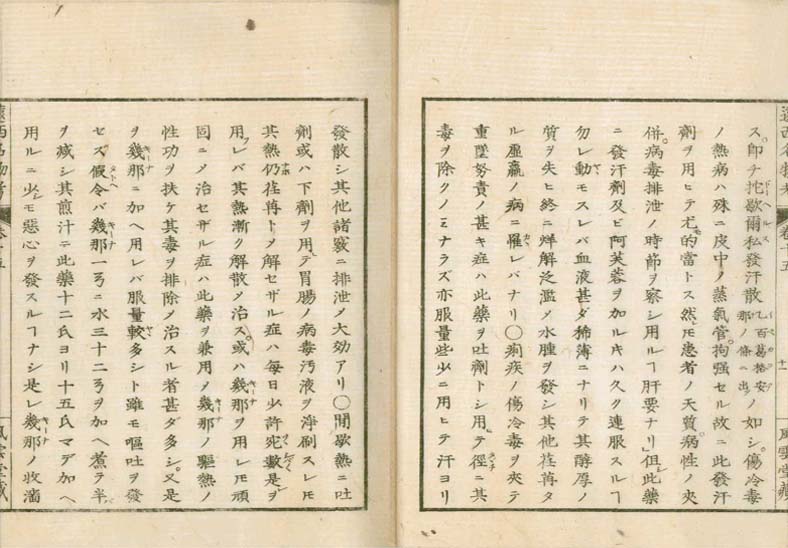 ス即チ抱歇爾私發汗散 乙百葛格安那ノ條ニ出 ノ如シ傷冷毒
ノ熱病ハ殊ニ皮中ノ蒸氣管拘强セル故ニ此發汗
劑ヲ用ヒテ尤的當トス然𪜈患者ノ天賛病性ノ夾
併病毒排泄ノ時節ヲ察シ用ルヿ肝要ナリ但此藥
ニ發汗劑及ビ阿芙蓉ヲ加ルキハ久ク連服スルヿ
勿レ動モスレバ血液甚ダ稀薄ニナリテ其醇厚ノ
質ヲ失ヒ終ニ烊解泛濫メ水腫ヲ發シ其他荏苒タ
ル虛羸ノ病ニ罹レバナリ〇痢疾ノ傷冷毒ヲ夾テ
重墜努責ノ甚キ症ハ此藥ヲ吐劑トシ用テ徑ニ其
毒ヲ除クノミナラズ亦服量些少ニ用ヒテ汗ヨリ
發散シ其他諸竅ニ排泄メ大効アリ〇間歇熱ニ吐
劑或ハ下劑ヲ用テ胃腸ノ病毒汚液ヲ淨刷スレモ
其熱仍荏苒トメ解セザル症ハ每日少許宛數是ヲ
用レバ其熱漸ク解散メ治ス或ハ幾那ヲ用レモ頑
固ニメ治セザル症ハ此藥ヲ兼用メ幾那ノ驅熱ノ
性功ヲ扶ケ其毒ヲ排除メ治スル者甚ダ多シ又是
ヲ幾那ニ加ヘ用レバ服量較多シト雖モ嘔吐ヲ發
セス假令バ幾那一ㄢニ水三十二ㄢヲ加ヘ煮テ半
ヲ減シ其煎汁ニ此藥十二氏ヨリ十五氏マデ加ヘ
用ルニ少シモ惡心ヲ發スルヿナシ是レ幾那ノ收濇
卷十五
風雲堂藏